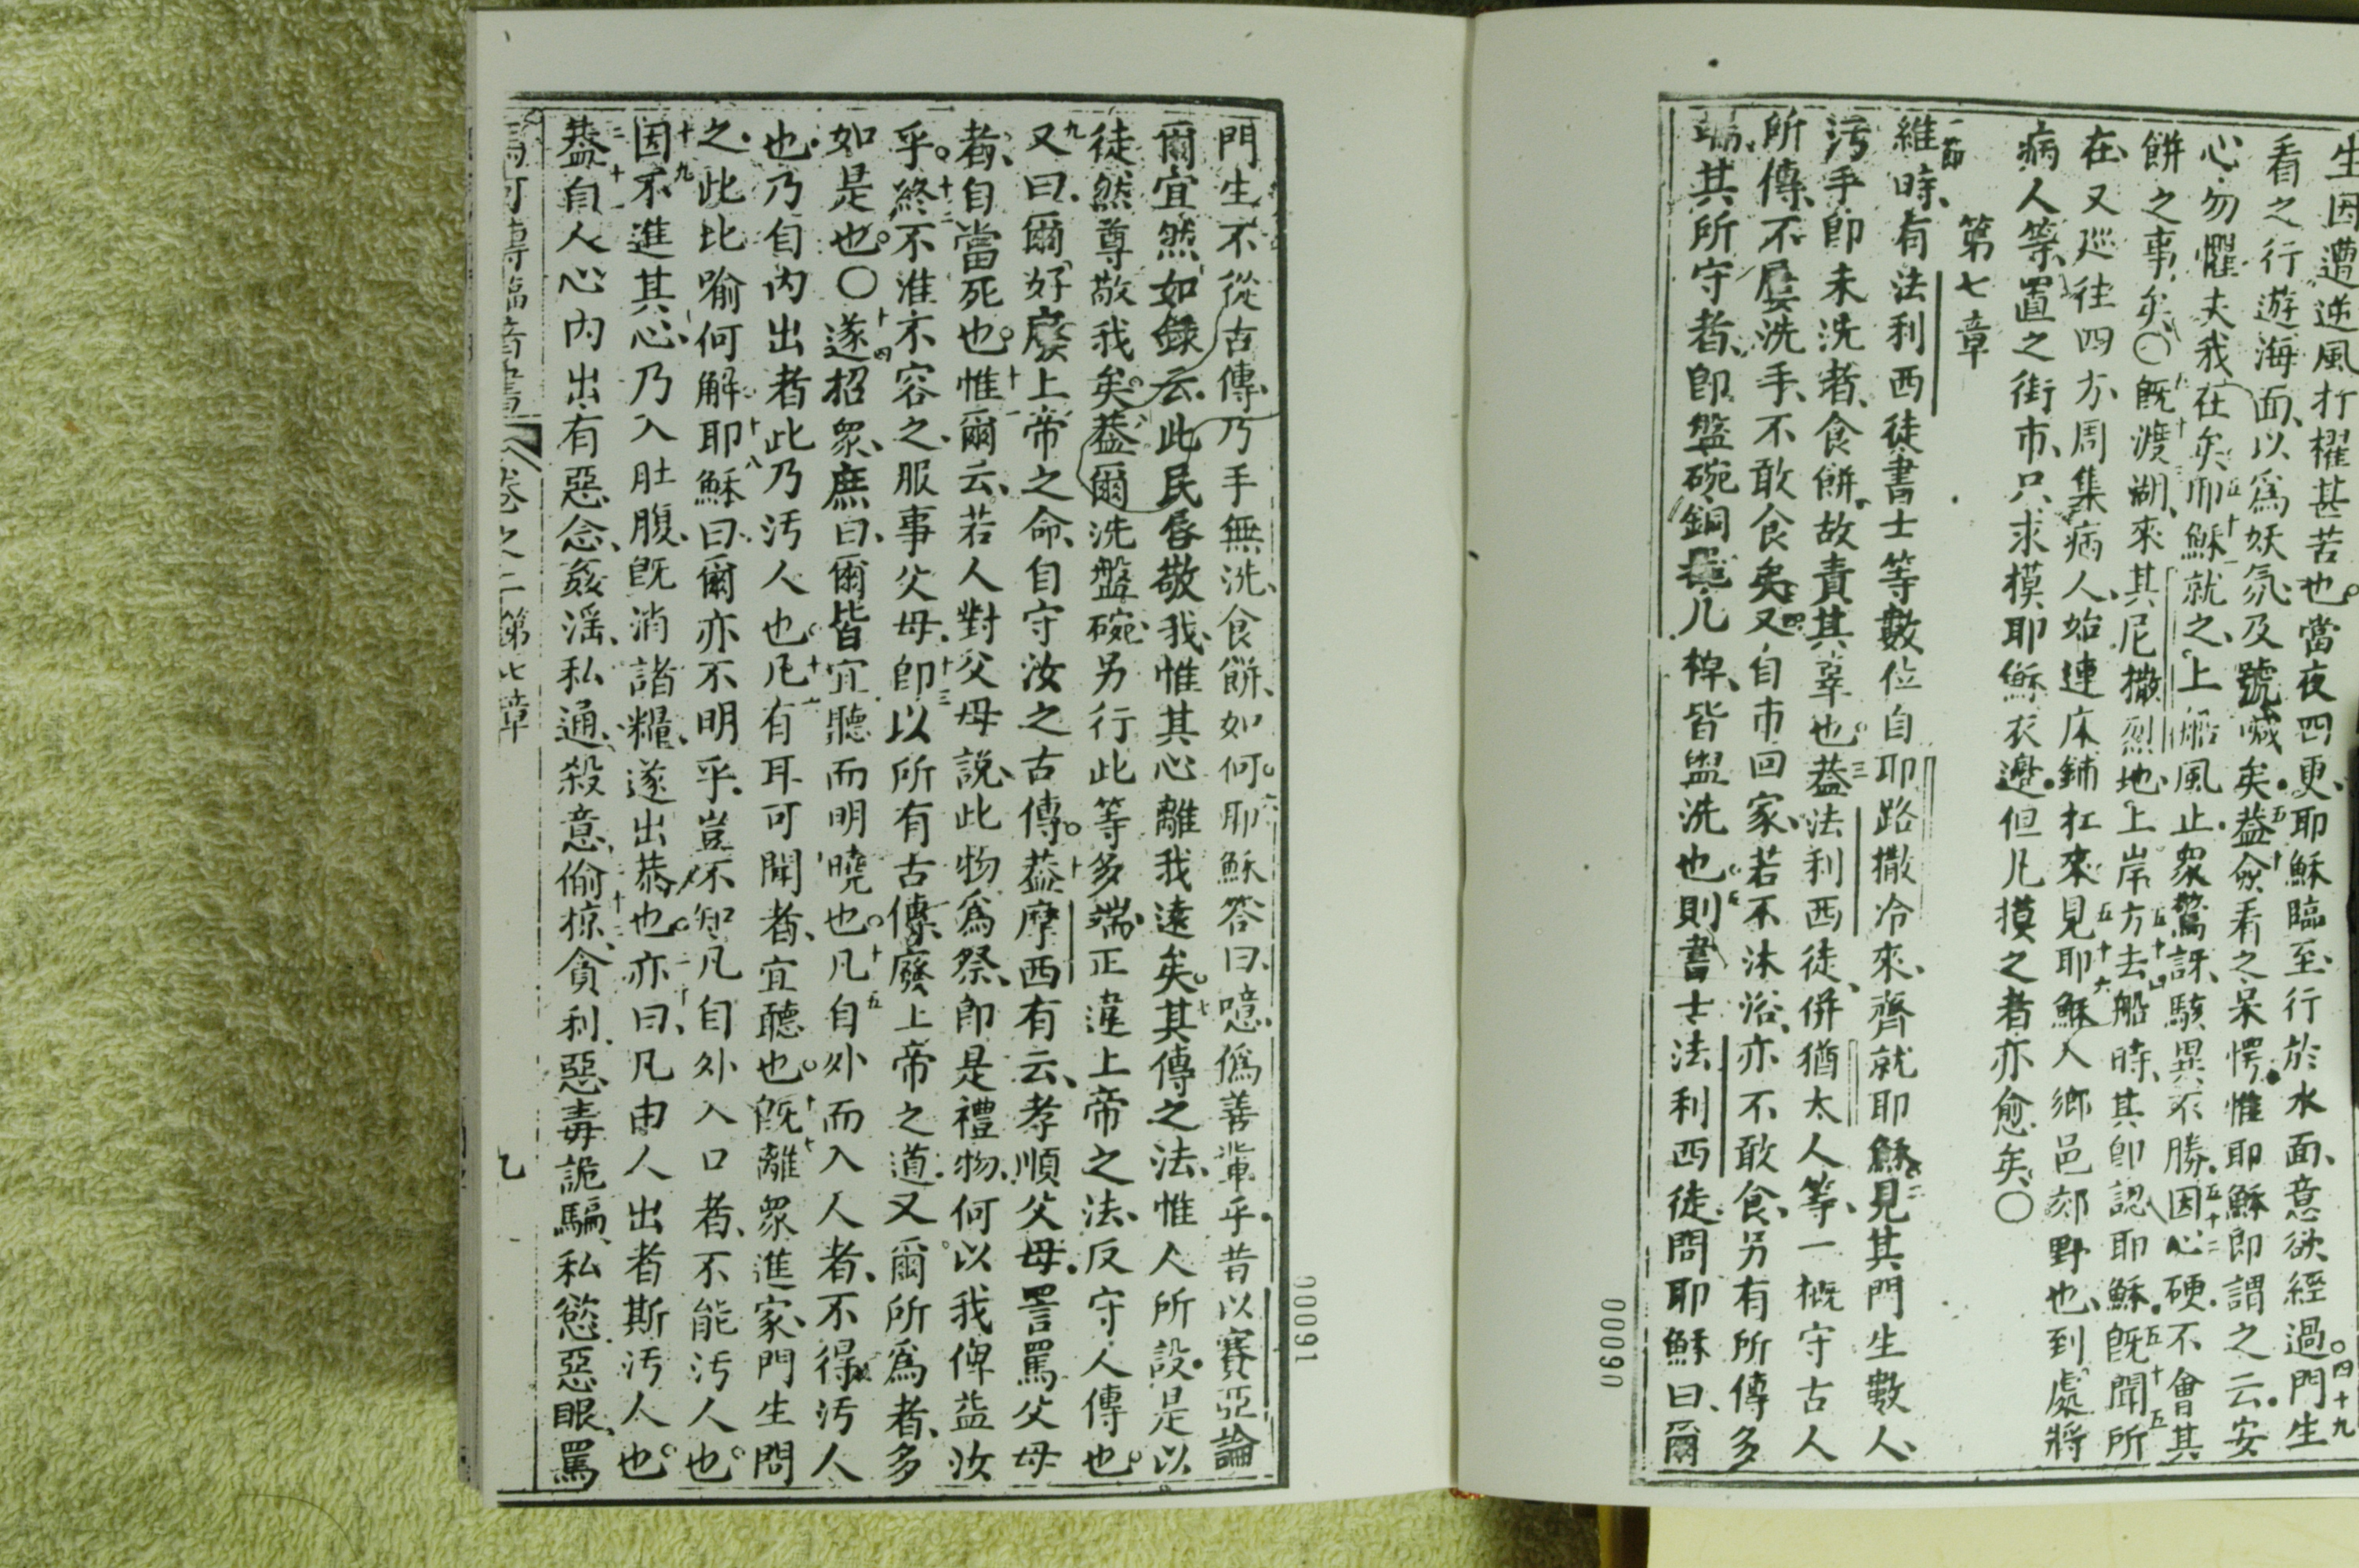 生因遭逆風打櫂甚苦也當夜四更耶穌臨至行於水面意欲經過門生
看之行遊海面以為妖氛及號喊矣蓋僉看之呆愕惟耶穌即謂之云安
心勿懼夫我在矣耶穌就之上船風止眾驚訝駭異不勝因心硬不會其
餅之事矣〇既渡湖來其尼撒烈地上岸方去船時其即認耶穌既聞所
在又巡往四方周集病人始連床鋪扛來見耶穌入鄉邑郊野也到處將
病人等置之街市只求摸耶穌衣邊但凡摸之者亦愈矣〇
第七章
維時有法利西徒書士等數位自耶路撒冷來齊就耶穌見其門生數人
污手即未洗者食餅故責其辜也蓋法利西徒併猶太人等一概守古人
所傳不屢洗手不敢食矣又自市回家若不沐浴亦不敢食另有所傳多
端其所守者即盤碗銅 几椑皆盥洗也則書士法利西徒問耶穌曰爾
00090
00091
門生不從古傳乃手無洗食餅如何耶穌答曰噫偽善輩乎昔以賽亞論
爾宜然如錄云此民唇敬我惟其心離我遠矣其傳之法惟人所設是以
徒然尊敬我矣蓋爾洗盤碗另行此等多端正違上帝之法反守人傳也
又曰爾好廢上帝之命自守汝之古傳蓋摩西有云孝順父母詈罵父母
者自當死也惟爾云若人對父母說此物為祭即是禮物何以我俾益汝
乎終不准亦不容之服事父母即以所有古傳廢上帝之道又爾所為者多
如是也〇遂招眾庶曰爾皆宜聽而明曉也凡自外而入人者不得污人
也乃自內出者此乃污人也凡有耳可聞者宜聽也既離眾進家門生問
之此比喻何解耶穌曰爾亦不明乎豈不知凡自外入口者不能污人也
因不進其心乃入肚腹既消諸糧遂出恭也亦曰凡由人出者斯污人也
蓋自人心內出有惡念姦淫私通殺意偷掠貪利惡毒詭騙私慾惡眼罵
馬可傳福音書 卷之二第七章 九